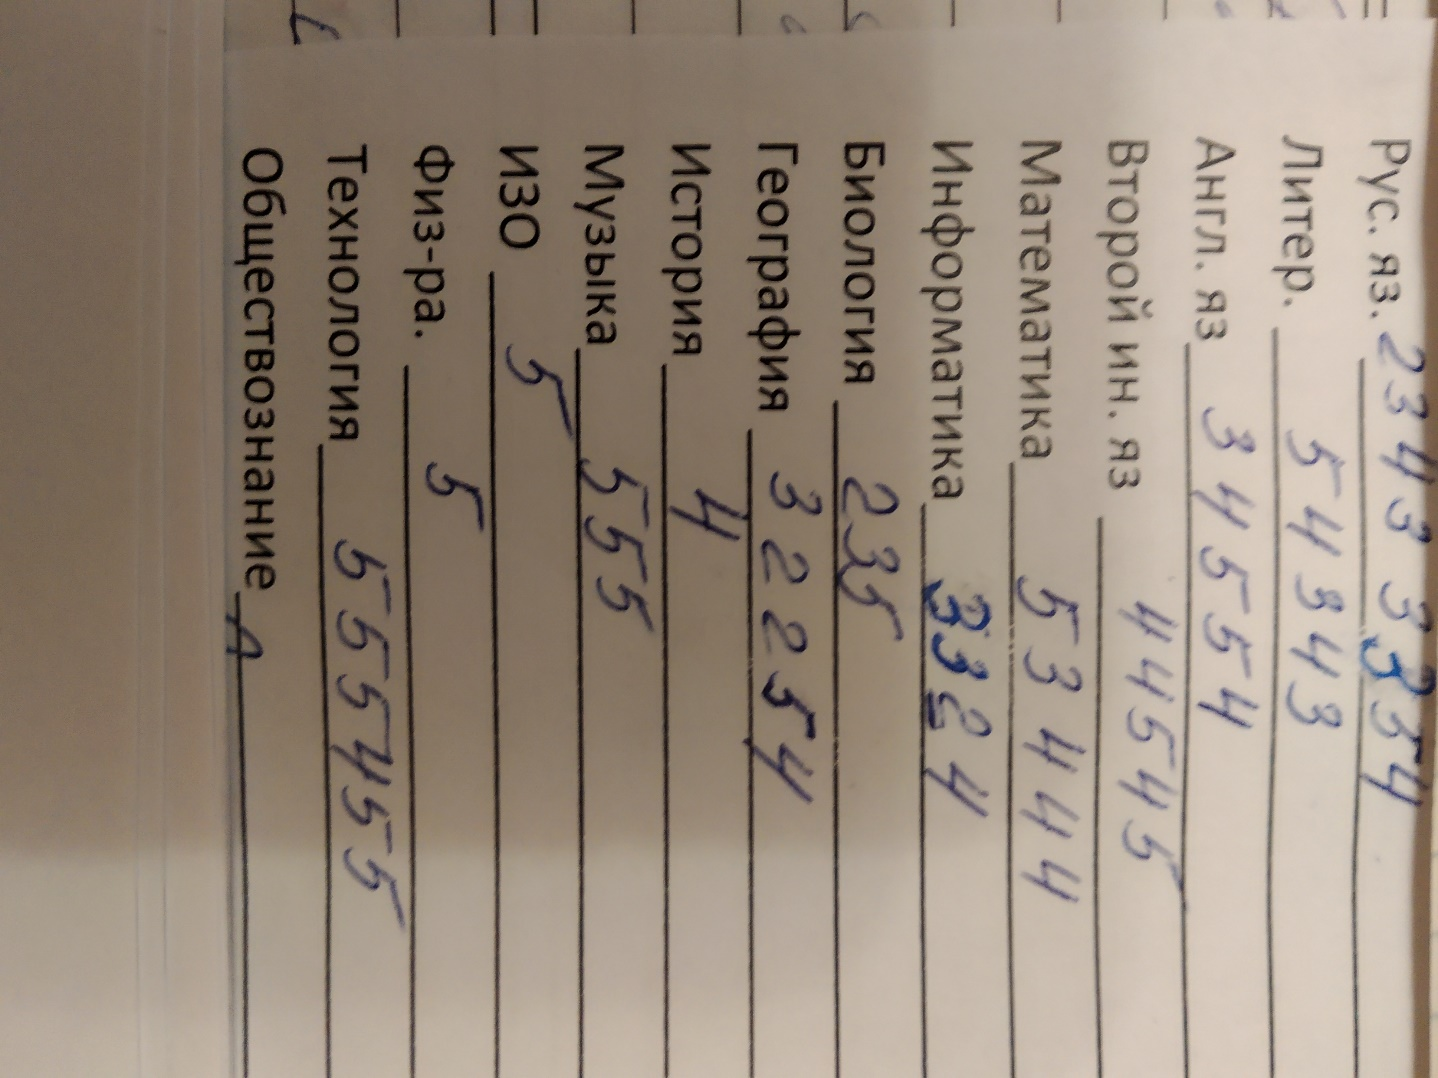 Рус. яз. 2 3 4 3 3 3 3 4
Литер. 5 4 3 4 3
Англ. яз 3 4 5 5 4
Второй ин. яз 4 4 5 4 5
Математика 5 3 4 4 4
Информатика 3 3 2 4
Биология 2 3 5
География 3 2 2 5 4
История 4
Музыка 5 5 5
ИЗО 5
Физ-ра. 5
Технология 5 5 5 4 5 5
Обществознание